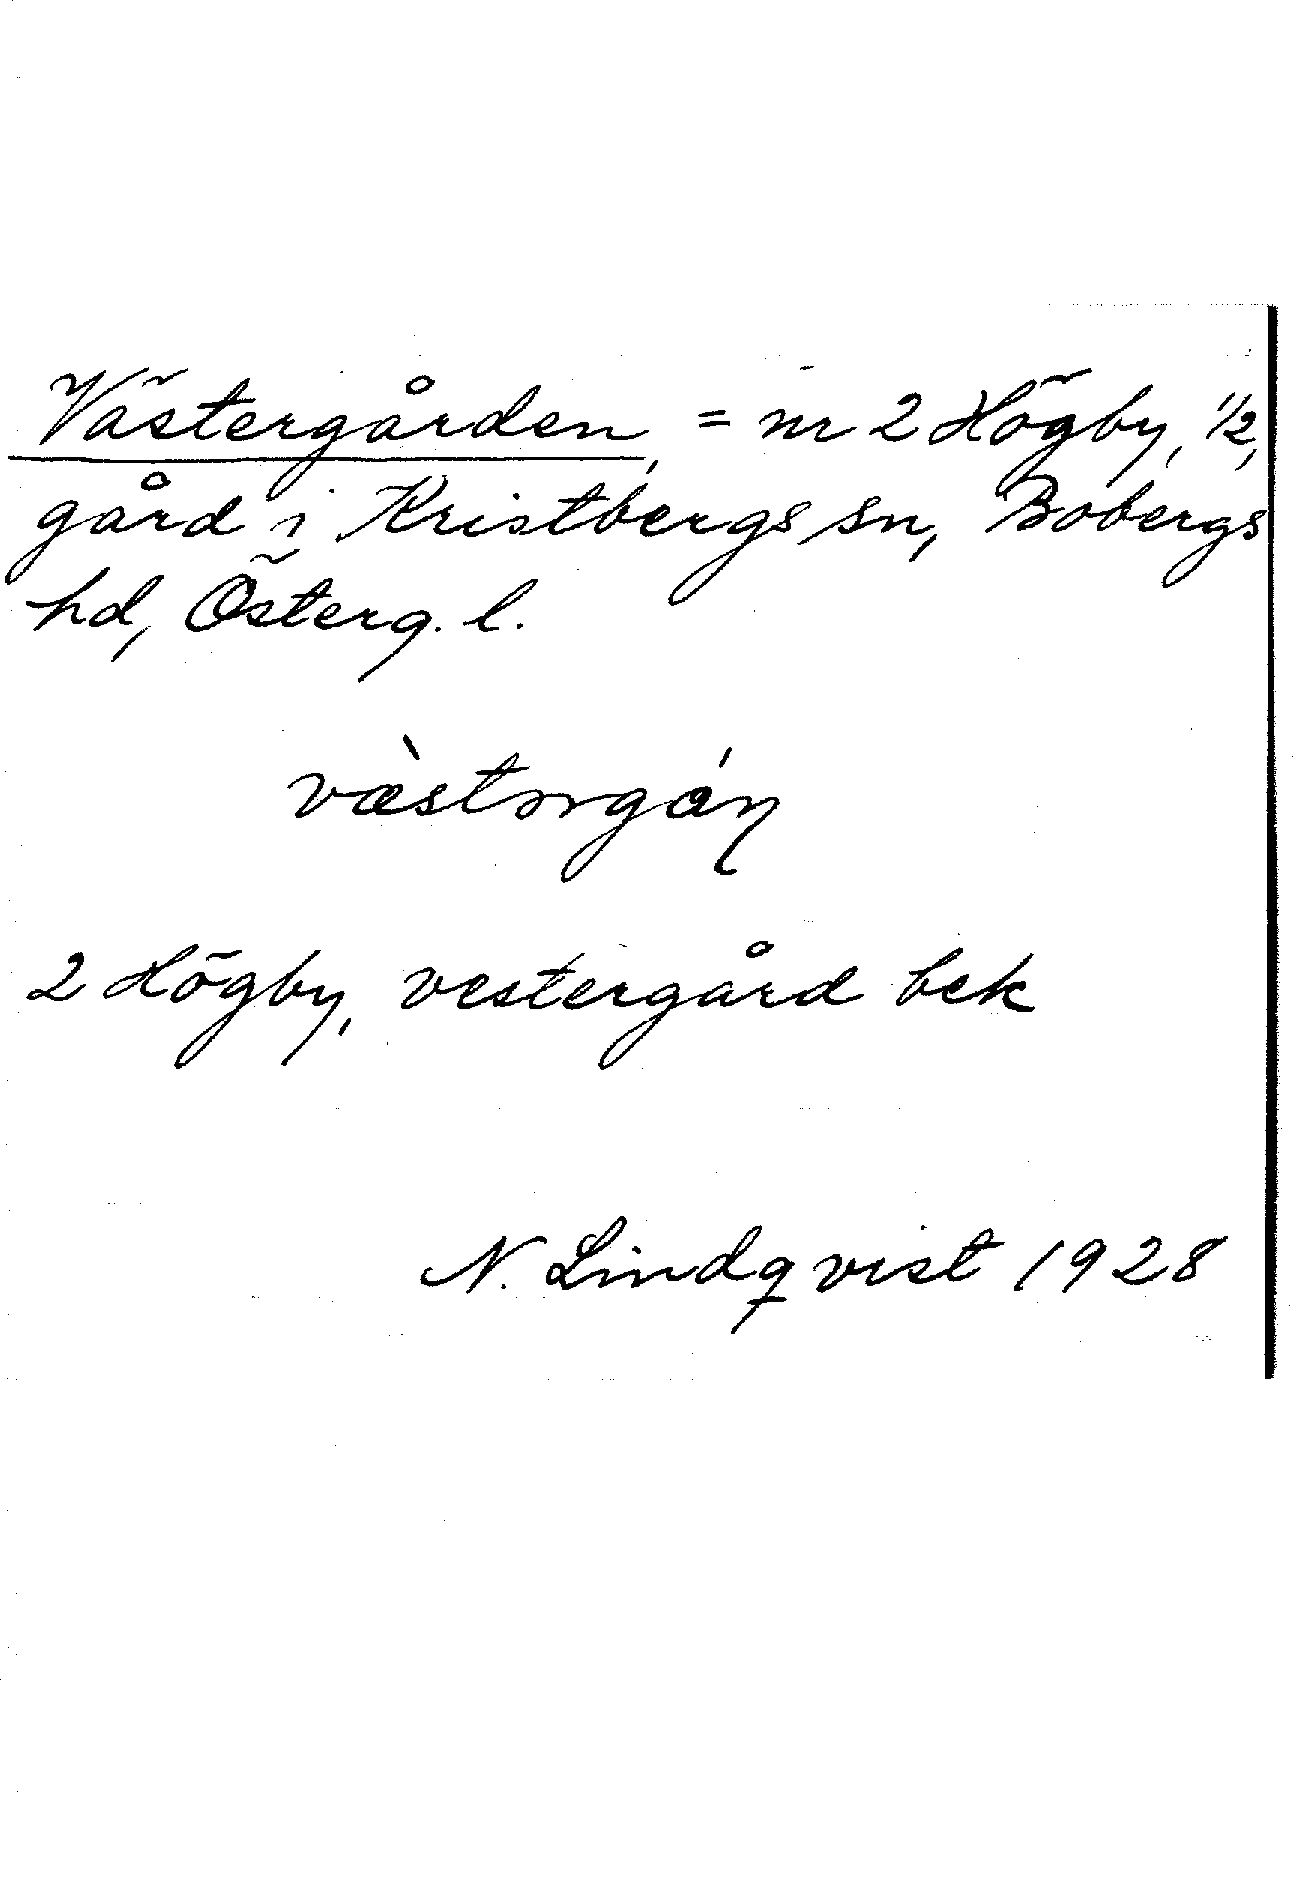 Västergården, = nr 2 Högby, 1/2,
gård i Kristbergs sn, Bobergs
hd, Österg. l.
2 Högby, vestergård bek
N. Lindqvist 1928